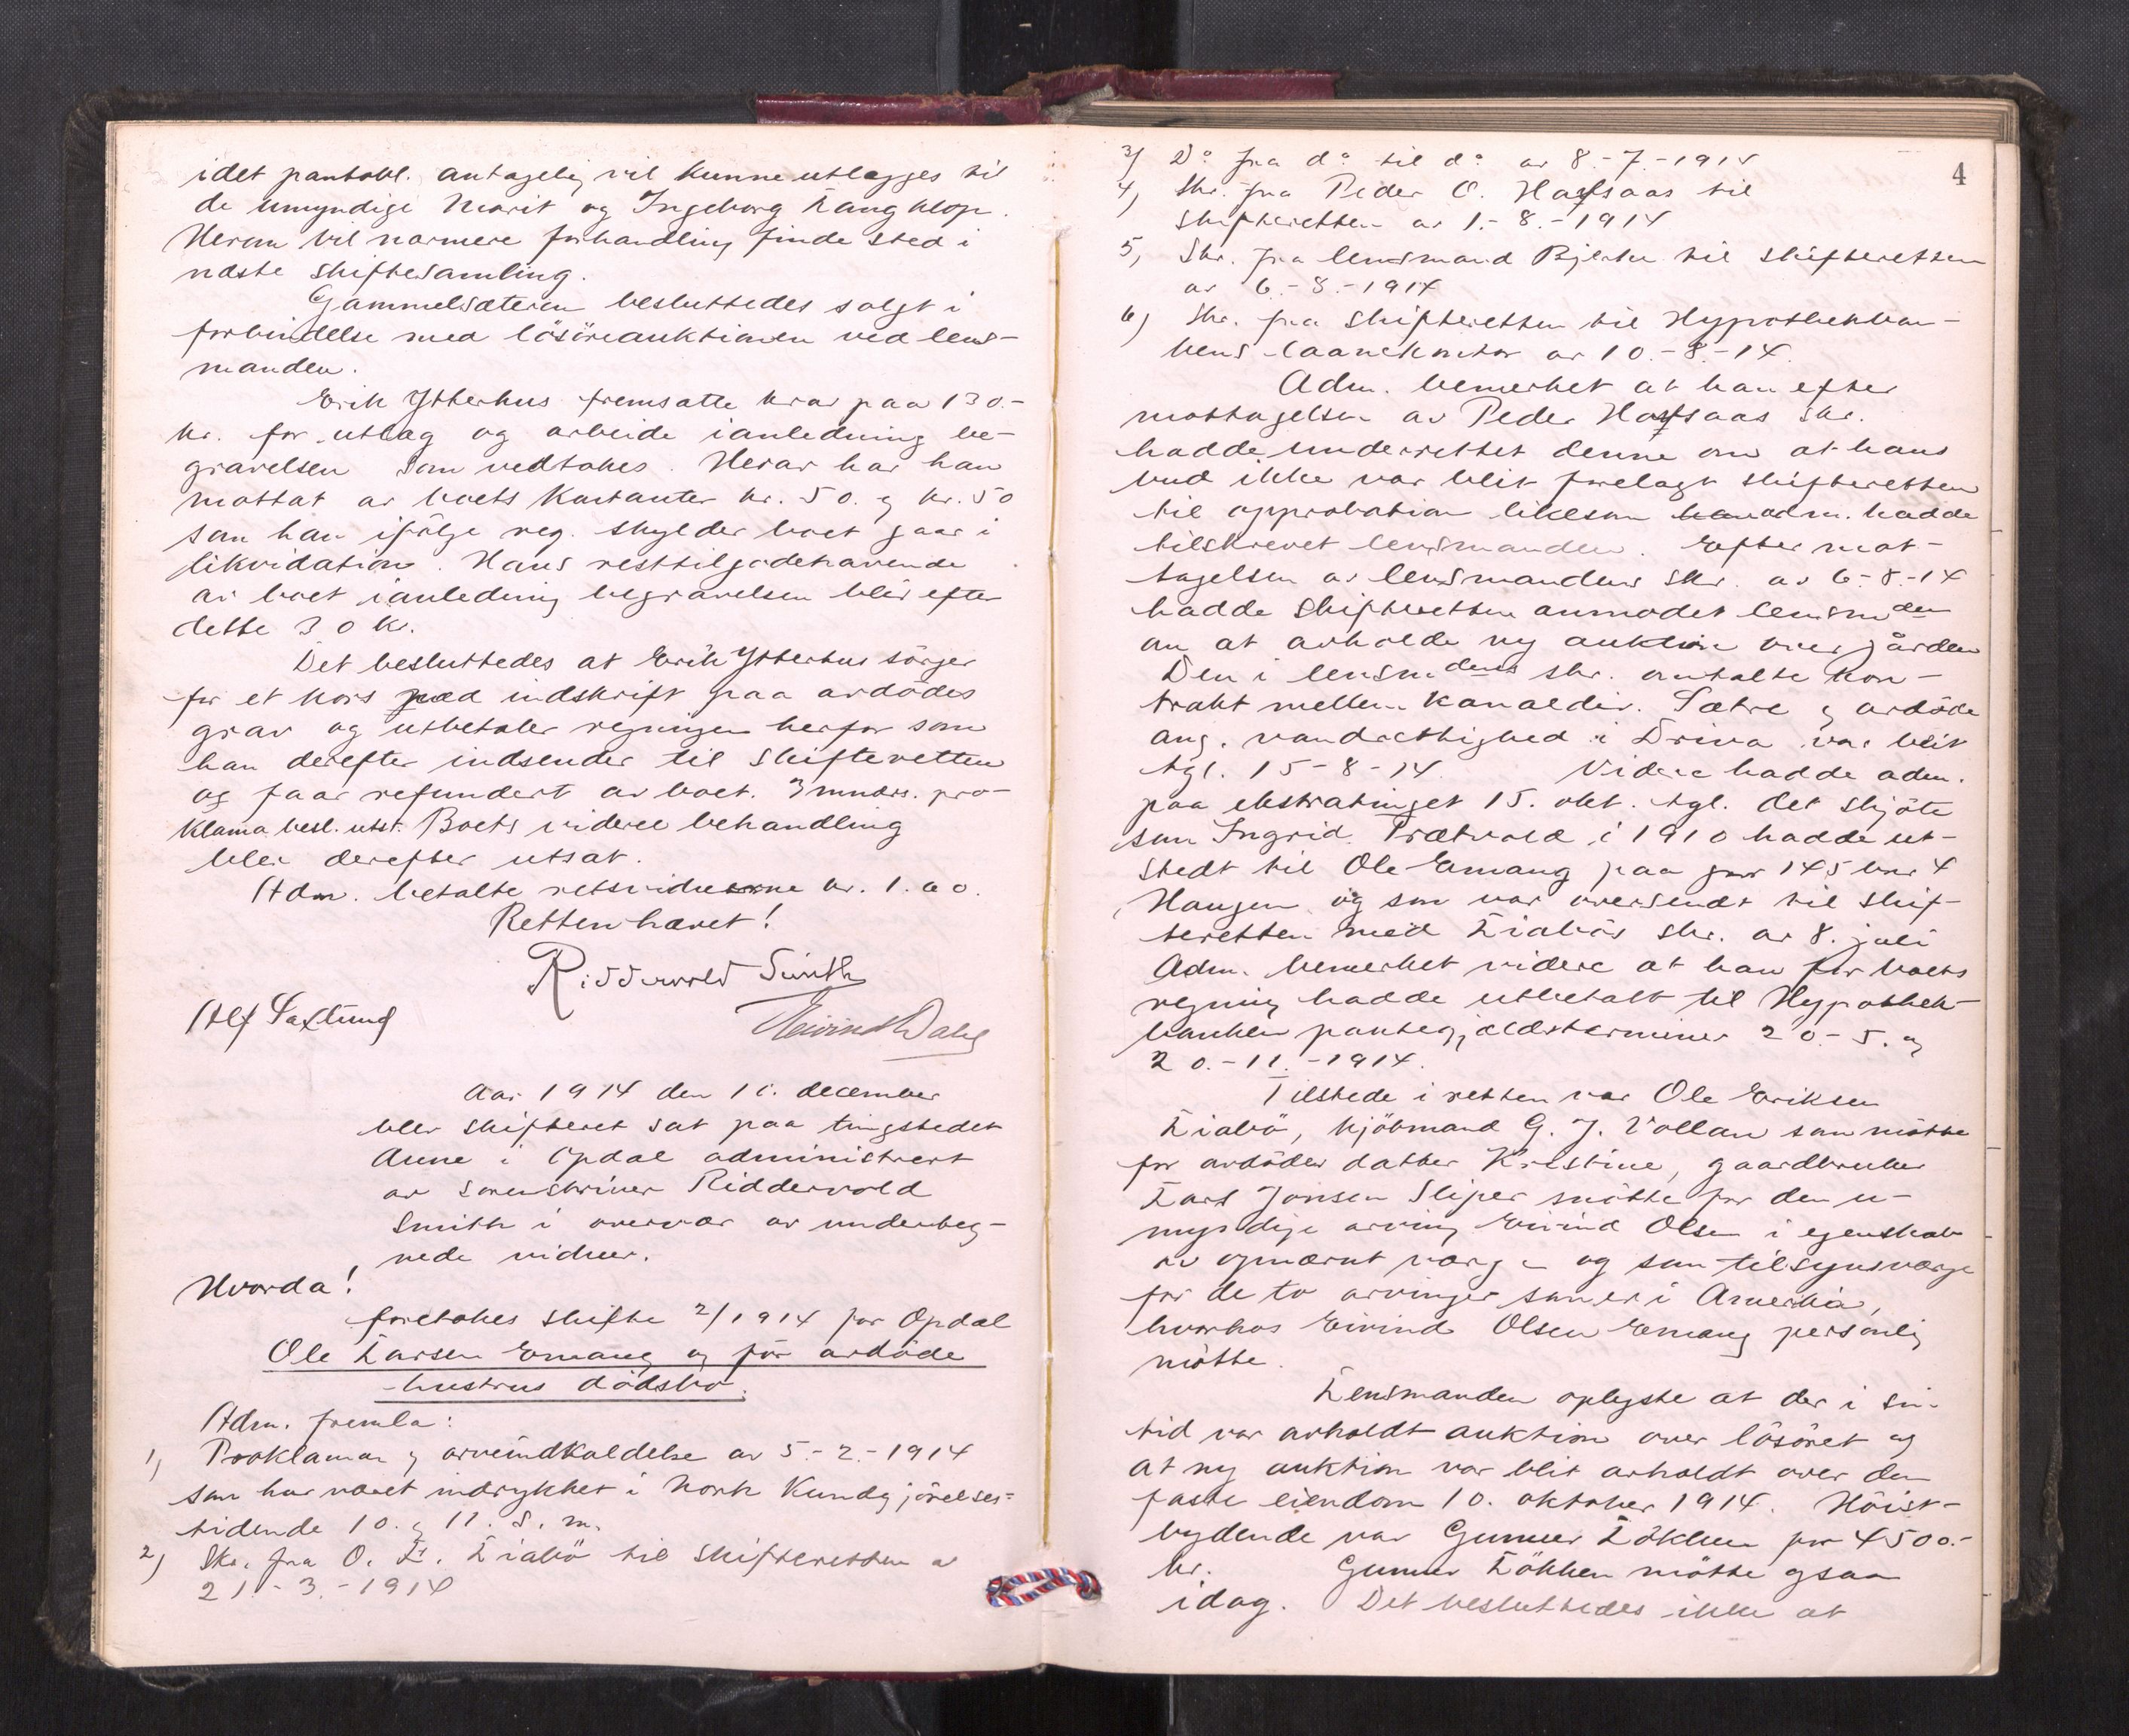 idet pantobl. antagelig vil kunne utlægges til
de umyndige Marit og Ingeborg Langklop.
Herom vil nærmere forhandling finde sted i
næste skiftesamling.
Gammelsæteren besluttedes solgt i
forbindelse med lösöreauktionen ved lens-
manden.
Erik Ytterhus fremsatte krav paa 130.-
kr. for utlæg og arbeide i anledning be-
gravelsen som vedtokes. Herav har han
mottat av boets kontanter kr. 50. og kr. 50
som han ifölge reg. skylder boet gaar i
likvidation. Hans resttilgodehavende
av boet i anledning begravelsen blir efter
dette 30 kr.
Det besluttedes at Erik Ytterhus sörger
for et kors med indskrift paa avdödes
grav og utbetaler regningen herfor som
han derefter indsender til skifteretten
og faar refundert av boet. 3 mndrs. pro-
klama besl. utst. Boets videre behandling
blev derefter utsat.
Adm. betalte retsvidnerne kr. 1.60.
Retten hævet!
Ridderwold Smith
Alf Saxlund
Eivind Dahl
Aar 1914 den 16. december
blev skifteret sat paa tingstedet
Aune i Opdal administrert
av sorenskriver Riddervold
Smith i overvær av underteg-
nede vidner.
Hvorda!
foretokes skifte 2/1914 for Opdal
Ole Larsen Emaug og för avdöde
hustrus dödsbo.
Adm. fremla:
1, Proklama og arveindkaldelse av 5.-2.-1914
som har været indrykket i Norsk Kundgjörelses-
tidende 10. og 11. s. m.
2) Skr. fra O. E. Liabö til skifteretten av
21.-3.-1914
4
3) Do fra do til do av 8.-7.-1914
4, Skr. fra Peder O. Hafsaas til
skifteretten av 1.-8.-1914
5, Skr. fra lensmand Bjerke til skifteretten
av 6.-8.-1914
6) Skr. fra skifteretten til Hypothekban-
kens laanekontor av 10.-8.-14.
Adm. bemerket at han efter
mottagelsen av Peder Hafsaas skr.
hadde underrettet denne om at hans
bud ikke var blit forelagt skifteretten
til approbation likesom han adm. hadde
tilskrevet lensmanden. Efter mot-
tagelsen av lensmandens skr. av 6-8.-14
hadde skifteretten anmodet lensmden
om at avholde ny auktion over gården
Den i lensmdens skr. omtalte kon-
trakt mellem kanaldir. Sætre og avdöde
ang. vandrettighed i Driva var blit
tgl. 15-8-14. Videre hadde adm.
paa ekstratinget 15. okt. tgl. det skjöte
som Ingrid Trætvold i 1910 hadde ut-
stedt til Ole Emaug paa gnr 145 bnr 4
Haugen og som var oversendt til skif-
teretten med Liabös skr. av 8. juli
Adm. bemerket videre at han for boets
regning hadde utbetalt til Hypothek-
banken pantegjældsterminer 20.-5. og
20.-11.-1914.
Tilstede i retten var Ole Eriksen
Liabö, kjöbmand G. J. Vollan som mötte
for avdödes datter Kristine, gaardbruker
Lars Jonsen Sliper mötte for den u-
myndige arving Eivind Olsen i egenskab
av opnævnt værge og som tilsynsværge
for de to arvinger som er i Amerika,
hvorhos Eivind Olsen Emaug personlig
mötte.
Lensmanden oplyste at der i sin
tid var avholdt auktion over lösöret og
at ny auktion var blit avholdt over den
faste eiendom 10. oktober 1914. Höist-
bydende var Gunner Lökken for 4500.-
kr. Gunner Lökken mötte ogsaa
idag. Det besluttedes ikke at